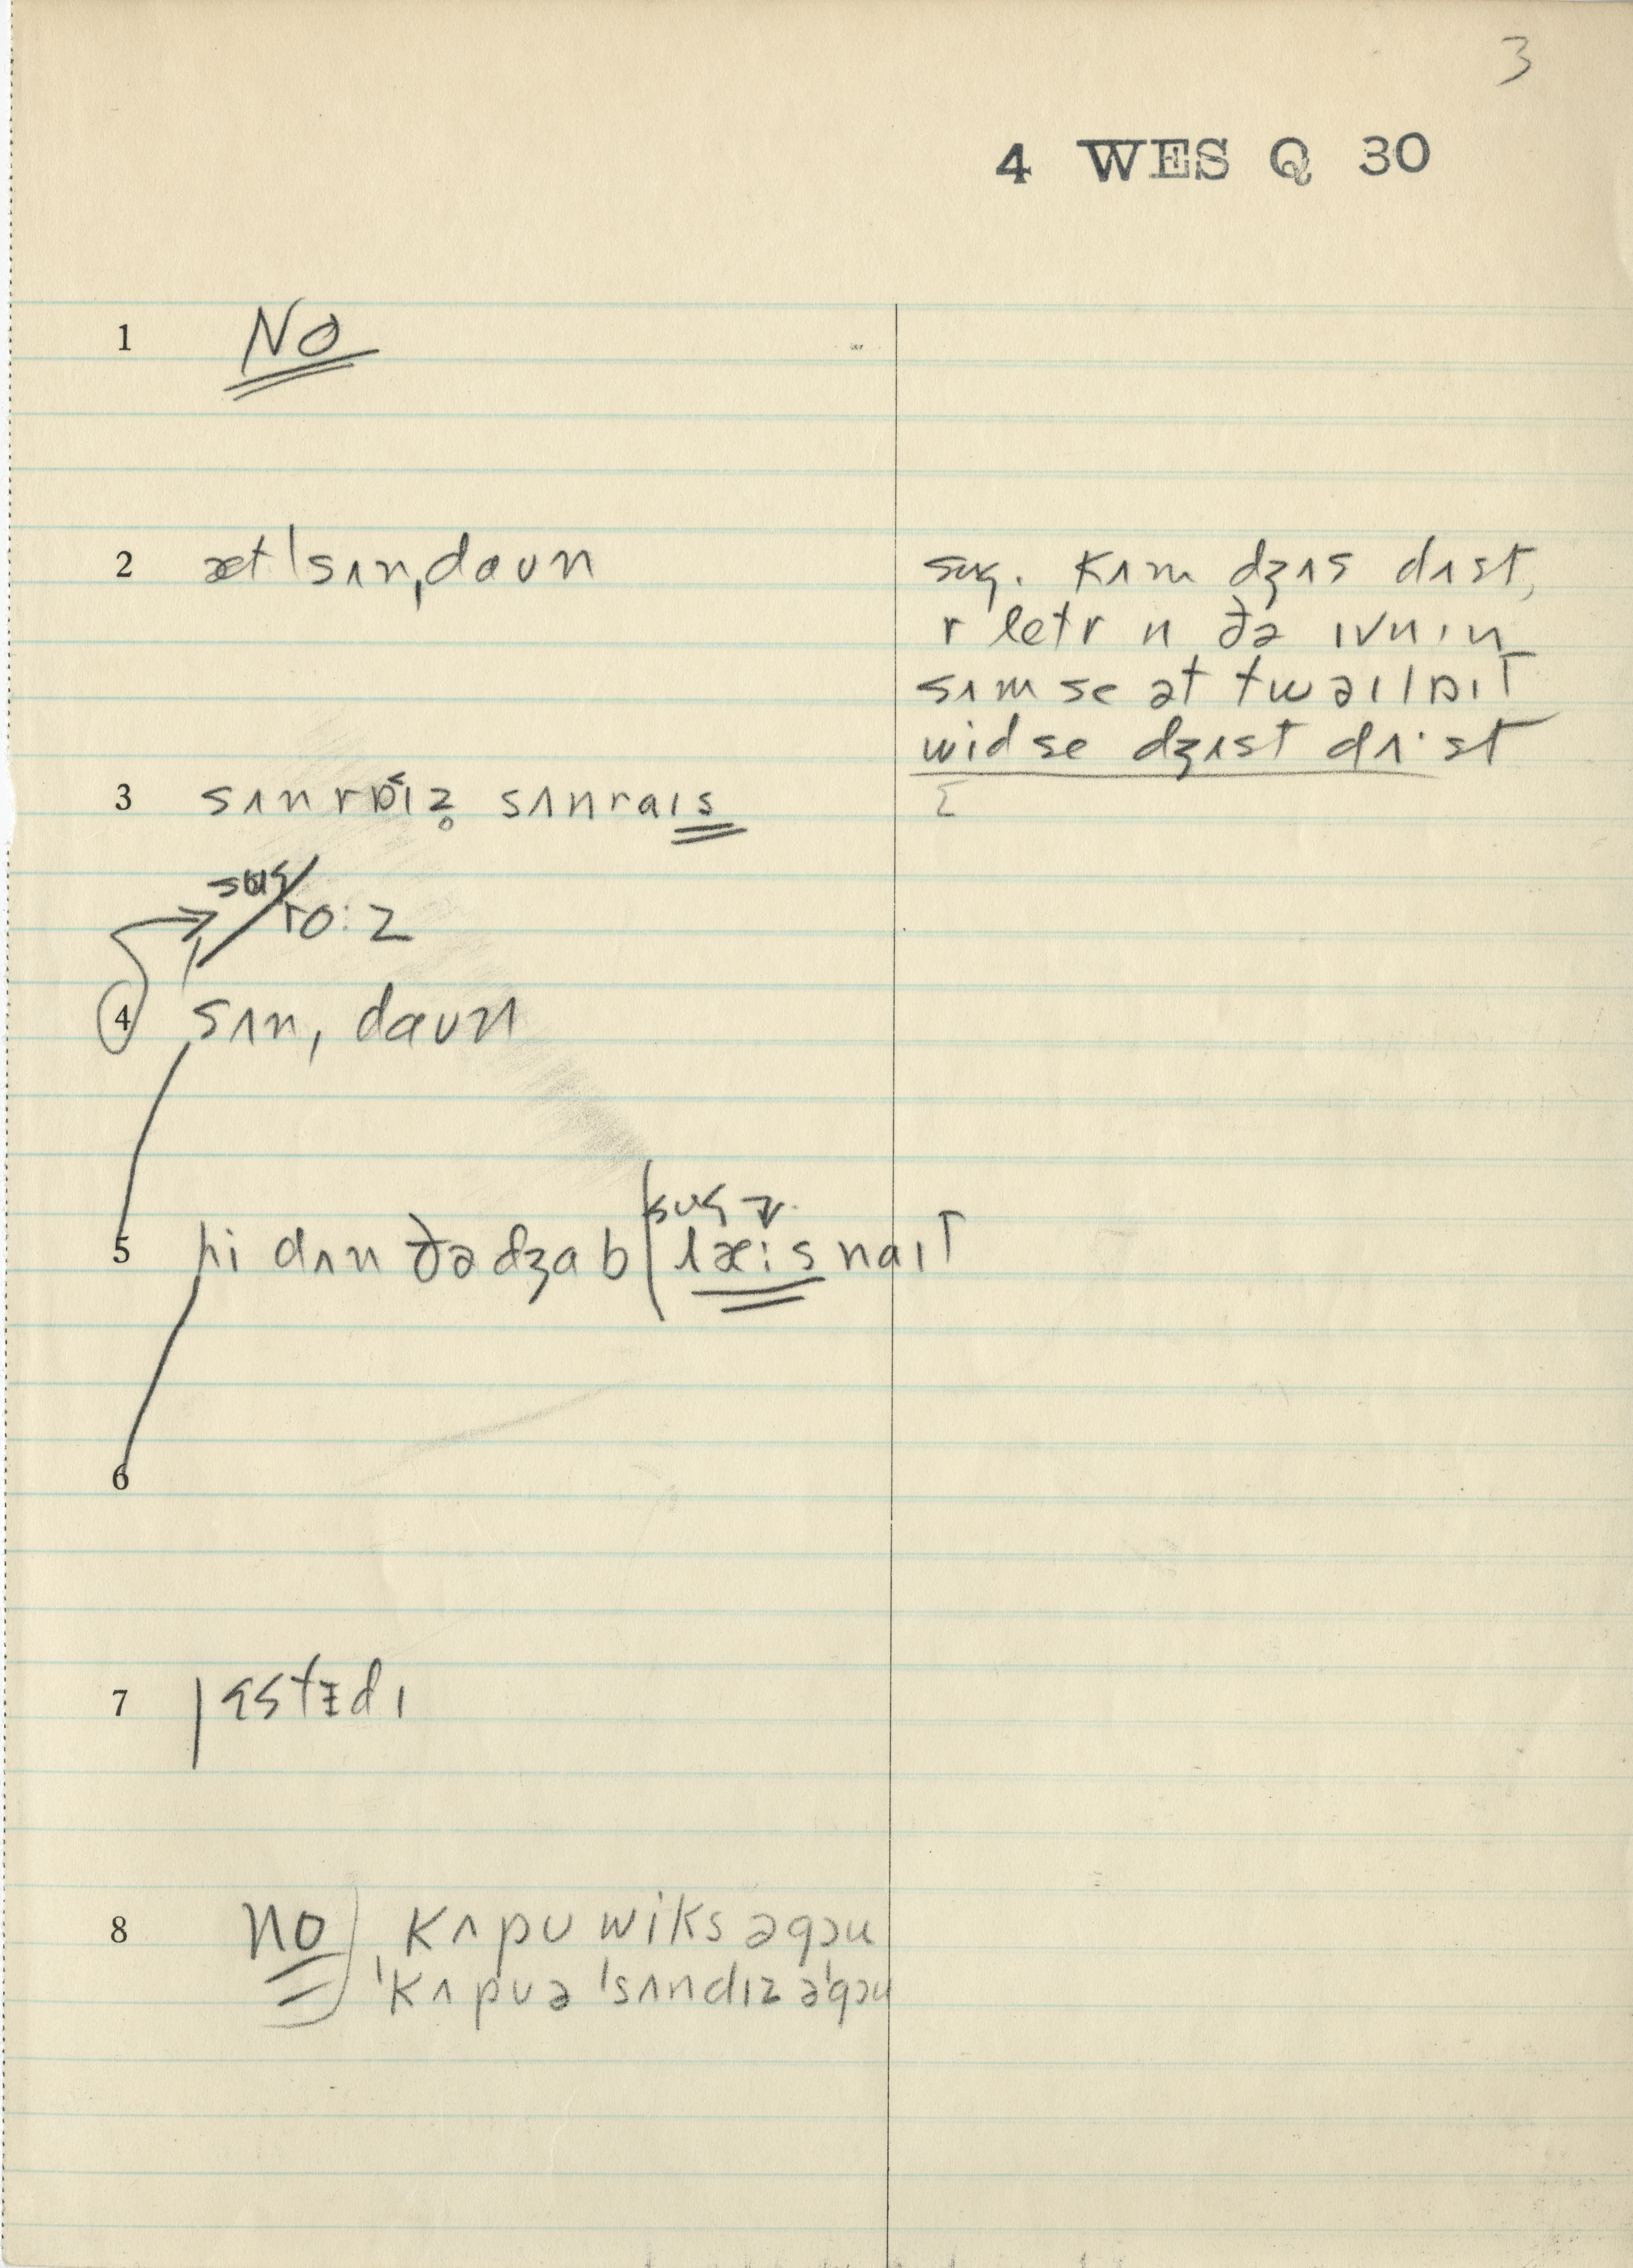 3
4 WES Q 30
1 No
2 æt ˈsʌnˌdaʊn
sug. kʌm dʒʌs dʌst,
r letr n ðə ɪvnɪn
sʌm se ət twaɪlɒɪt
wid se dʒʌst dʌ·st
3 sʌnrɒɪz̥ sʌnraɪs
sug ro:z
4 sʌnˌdaʊn
sug
5 hi dʌn ðə dʒab læ:s naɪt
6
7 jɛstɪdɪ
8 no kʌpʊ wiks əgɔu
ˈkʌpʊə ˈsʌndɪz əˈgɔu